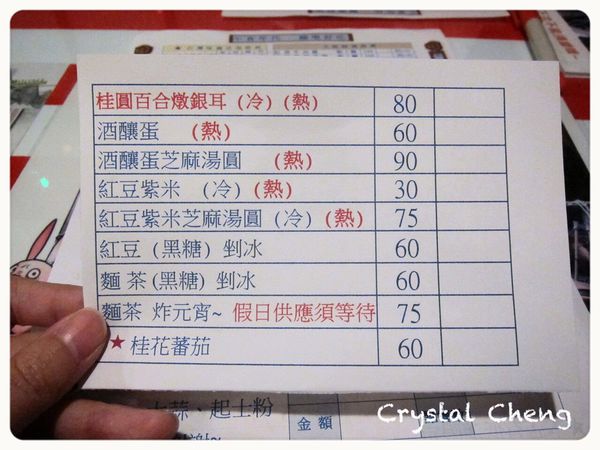 桂圓百合燉銀耳 (冷) (熱) 80
酒釀蛋 (熱) 60
酒釀蛋芝麻湯圓 (熱) 90
紅豆紫米 (冷) (熱) 30
紅豆紫米芝麻湯圓 (冷) (熱) 75
紅豆 (黑糖) 剉冰 60
麵 茶 (黑糖) 剉冰 60
麵茶 炸元宵~ 假日供應須等待 75
★ 桂花蕃茄 60
大蒜、起士粉
金額
Crystal Cheng